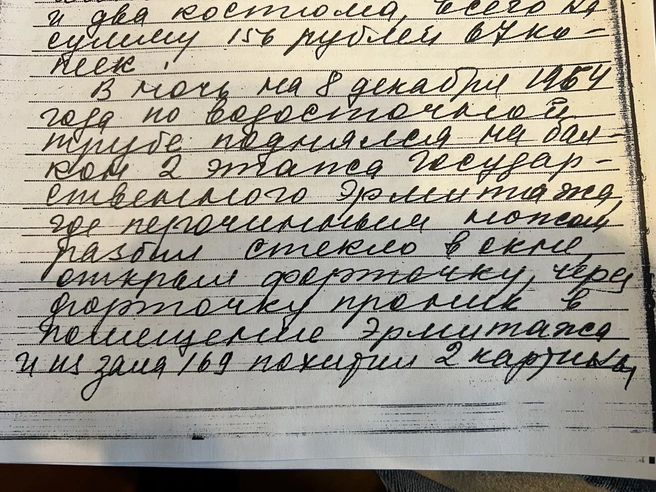 и два костюма, всего на
сумму 156 рублей 67 ко-
пеек.
В ночь на 8 декабря 1964
года по водосточной
трубе поднялся на бал-
кон 2 этажа Государ-
ственного Эрмитажа,
где перочинным ножом
разбил стекло в окне,
открыл форточку, через
форточку проник в
помещение Эрмитажа
и из зала 169 похитил 2 картины,